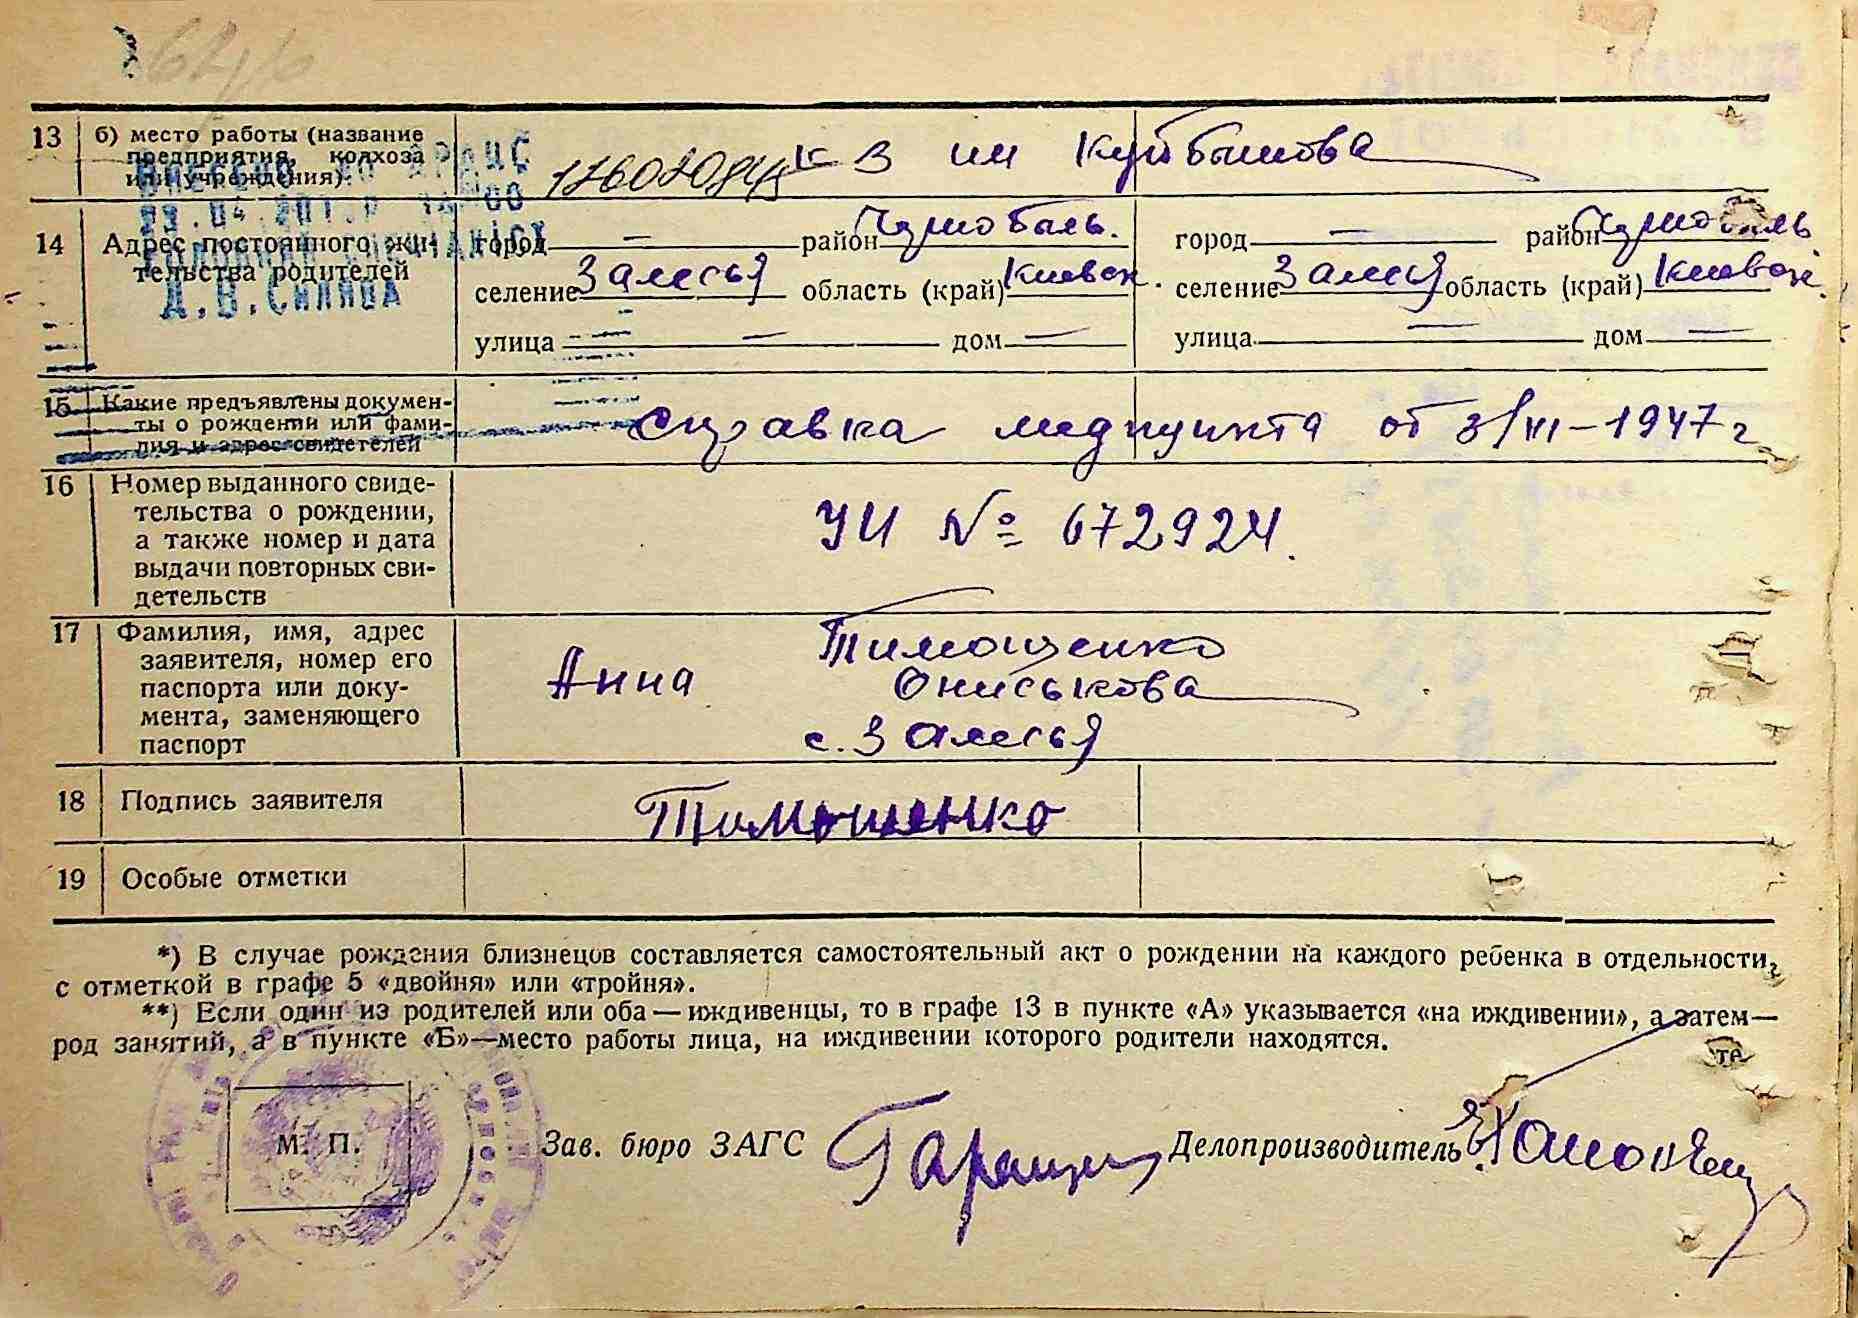 13 б) место работы (название
предприятия, колхоза
или учреждения).
к-з им Куйбышова
14 Адрес постоянного жи-
тельства родителей
город — район Чернобыль.
селение Залесья область (край) Киевск.
улица — дом —
город — район Чернобыль
селение Залесья область (край) Киевск.
улица — дом —
15 Какие предъявлены докумен-
ты о рождении или фами-
лия и адрес свидетелей
Справка медпункта от 3/III-1947 г
16 Номер выданного свиде-
тельства о рождении,
а также номер и дата
выдачи повторных сви-
детельств
УИ № 672924.
17 Фамилия, имя, адрес
заявителя, номер его
паспорта или доку-
мента, заменяющего
паспорт
Тимощенко
Анна Ониськова
с. Залесья
18 Подпись заявителя
Тимошенко
19 Особые отметки
*) В случае рождения близнецов составляется самостоятельный акт о рождении на каждого ребенка в отдельности,
с отметкой в графе 5 «двойня» или «тройня».
**) Если один из родителей или оба — иждивенцы, то в графе 13 в пункте «А» указывается «на иждивении», а затем—
род занятий, а в пункте «Б»—место работы лица, на иждивении которого родители находятся.
М. П.
Зав. бюро ЗАГС
Делопроизводитель